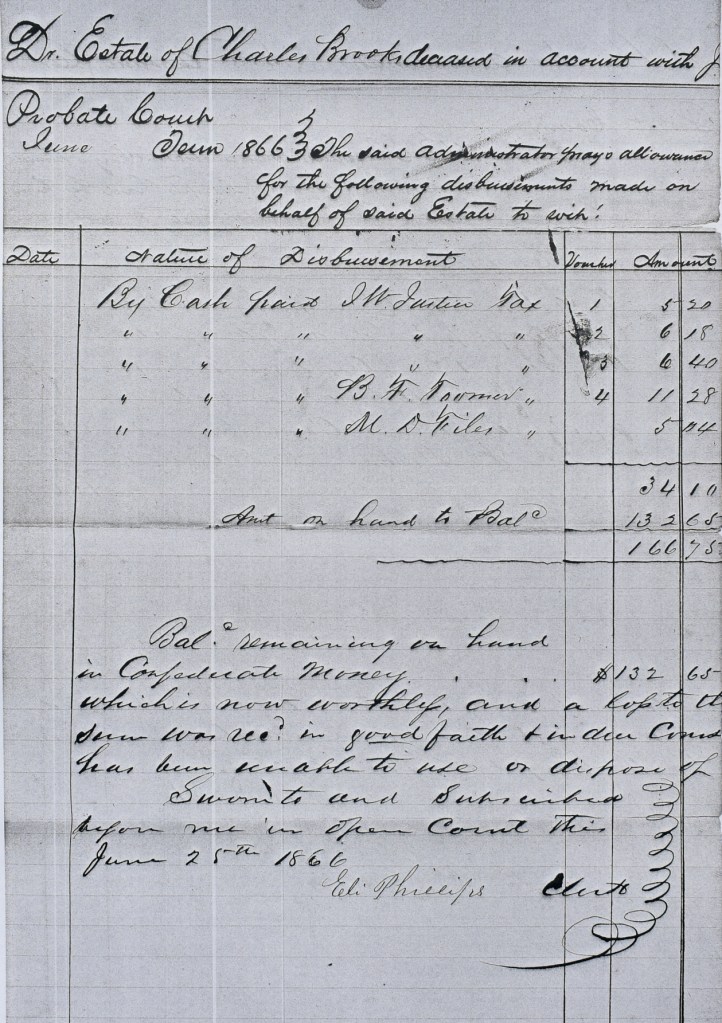 Dr. Estate of Charles Brooks deceased in account with J
Probate Court
June Term 1866 The said Administrator prays allowance
for the following disbursements made on
behalf of said Estate to wit:
Date Nature of Disbursement Voucher Amount
By Cash paid J. W. Justice Tax 1 5 20
" " " " " 2 6 18
" " " " " 3 6 40
" " " B. F. Toomer " 4 11 28
" " " M. D. Files " 5 04
34 10
Amt on hand to Balc 132 65
166 75
Bal. remaining on hand
in Confederate Money . . . $132 65
which is now worthless, and a loss to th
sum was recd in good faith & in due Cours
has been unable to use or dispose of
Sworn to and Subscribed
before me in open Court this
June 25th 1866
Eli Phillips Clerk